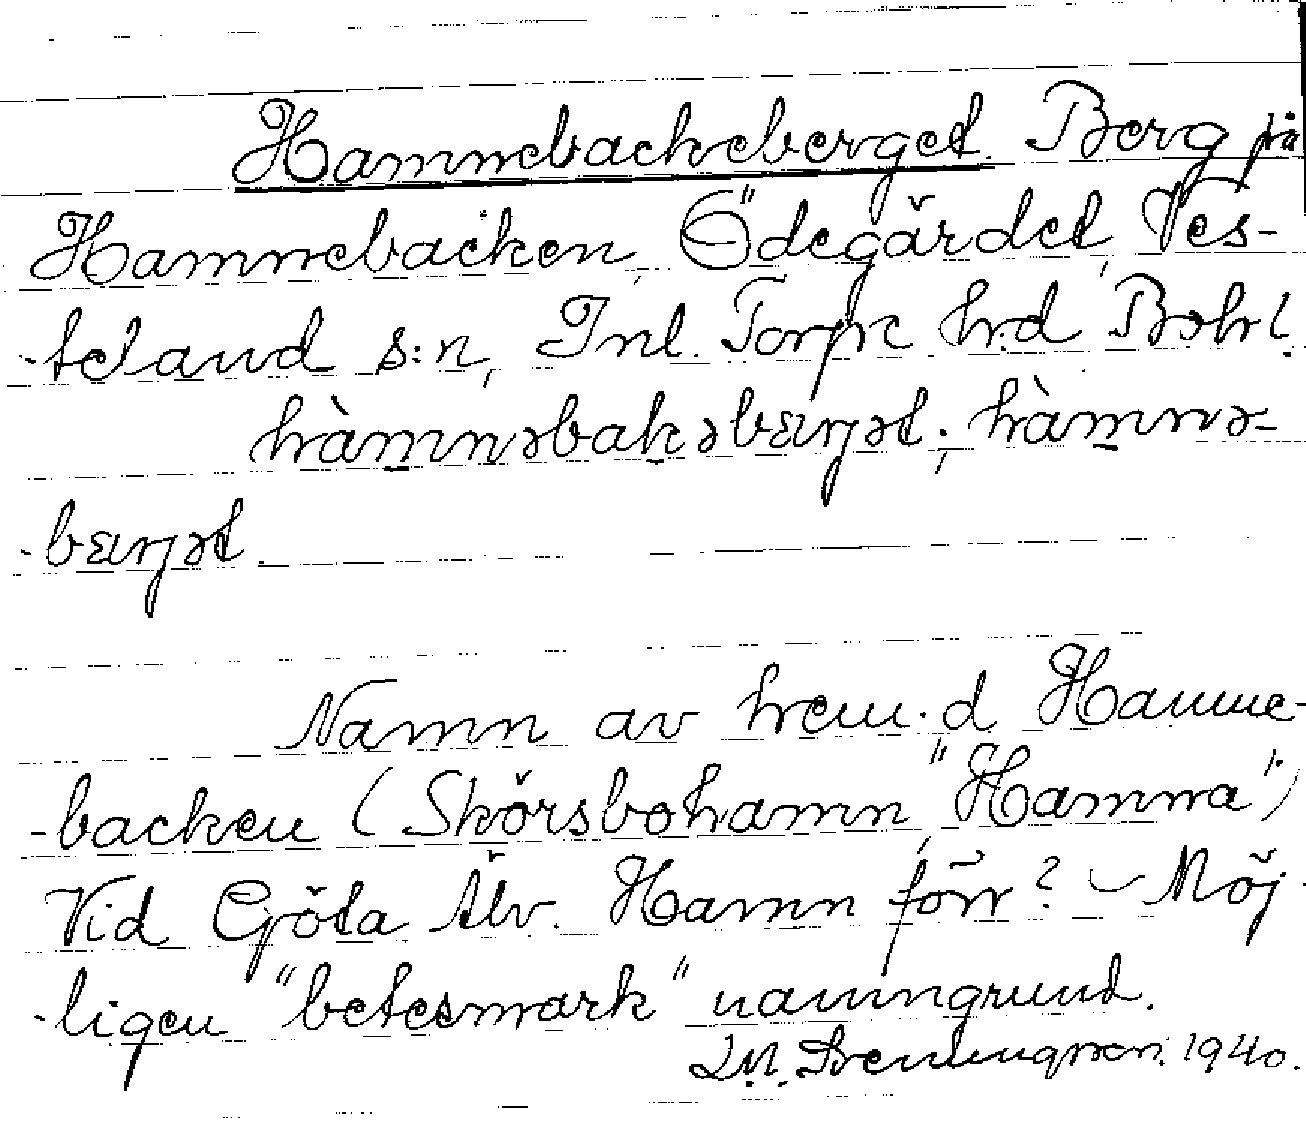 Hamnebackeberget. Berg på
Hamnebacken, Ödegärdet, Ves-
-terland s:n, Inl. Torpe hrd Bohl.
hàmnəbakəbærjət; hàmnə-
-bærjət
Namn av hem.d Hamne-
-backen (Skörsbohamn, "Hamna".)
Vid Göta Älv. Hamn förr? - Möj-
-ligen "betesmark" namngrund.
1940.